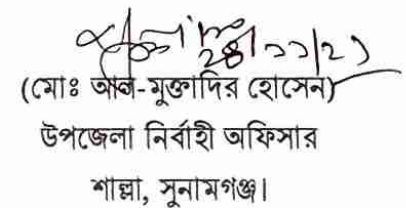 ২৪/১১/২১
(মোঃ আল-মুক্তাদির হোসেন)
উপজেলা নির্বাহী অফিসার
শাল্লা, সুনামগঞ্জ।